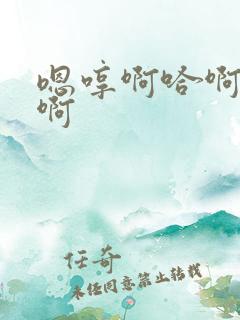 嗯哼啊哈啊
啊
任奇
未经同意禁止转载